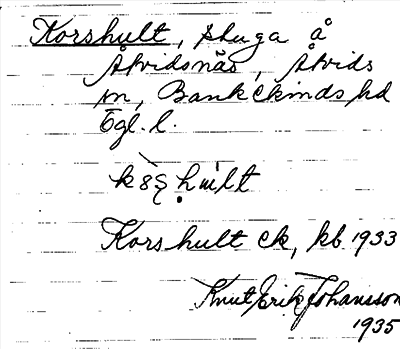 Korshult, stuga å
Åtvidsnäs, Åtvids
sn, Bankekinds hd
Ögl. l.
Korshult ek, kb 1933
Knut Erik Johansson
1935